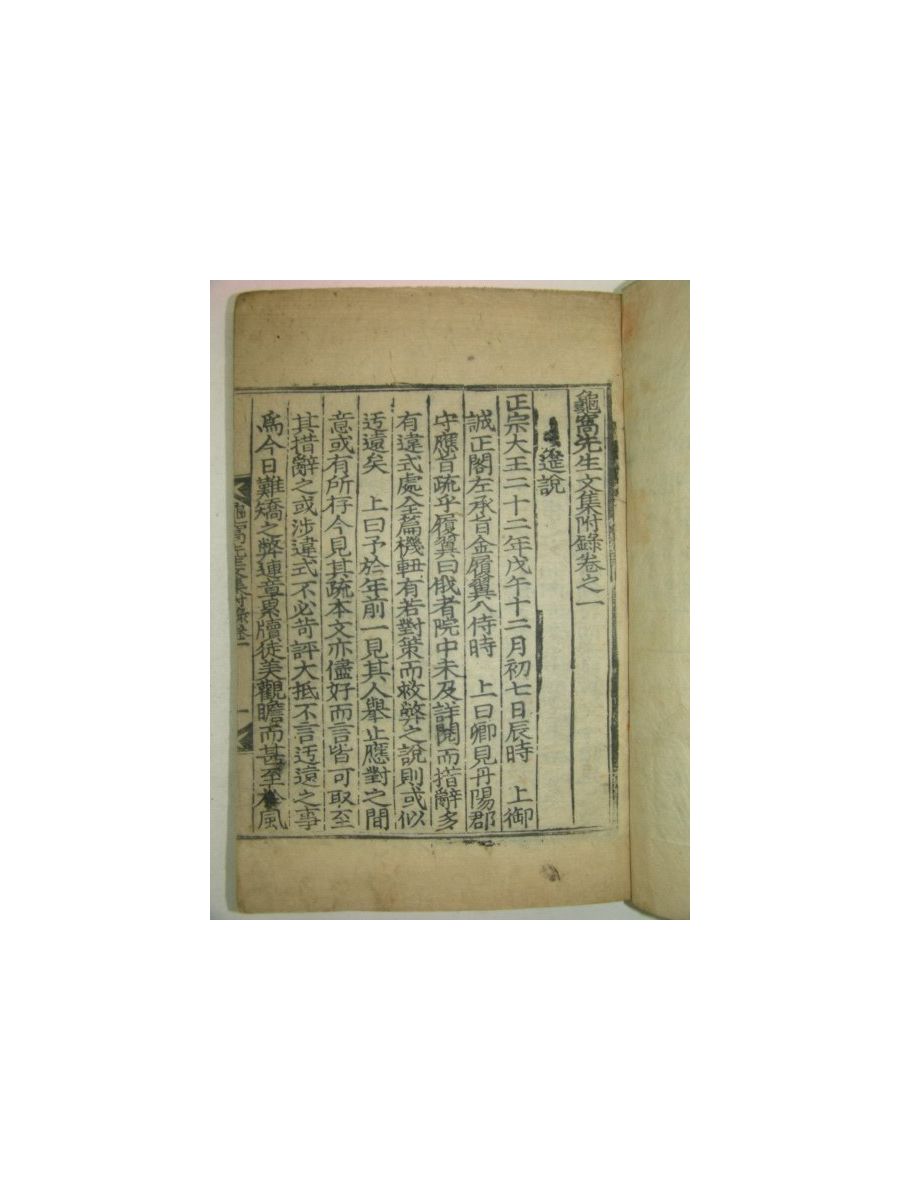 龜窩先生文集附錄卷之一
筵說
正宗大王二十二年戊午十二月初七日辰時　上御
誠正閣左承旨金履翼入侍時　上曰卿見丹陽郡
守應旨疏乎履翼曰俄者院中未及詳閱而措辭多
有違式處全篇機軸有若對策而救弊之說則或似
迂遠矣　上曰予於年前一見其人擧止應對之間
意或有所存今見其疏本文亦儘好而言皆可取至
其措辭之或涉違式不必苛評大抵不言迂遠之事
爲今日難矯之弊連章累牘徒美觀瞻而甚至於風
龜窩先生文集附錄卷一　一